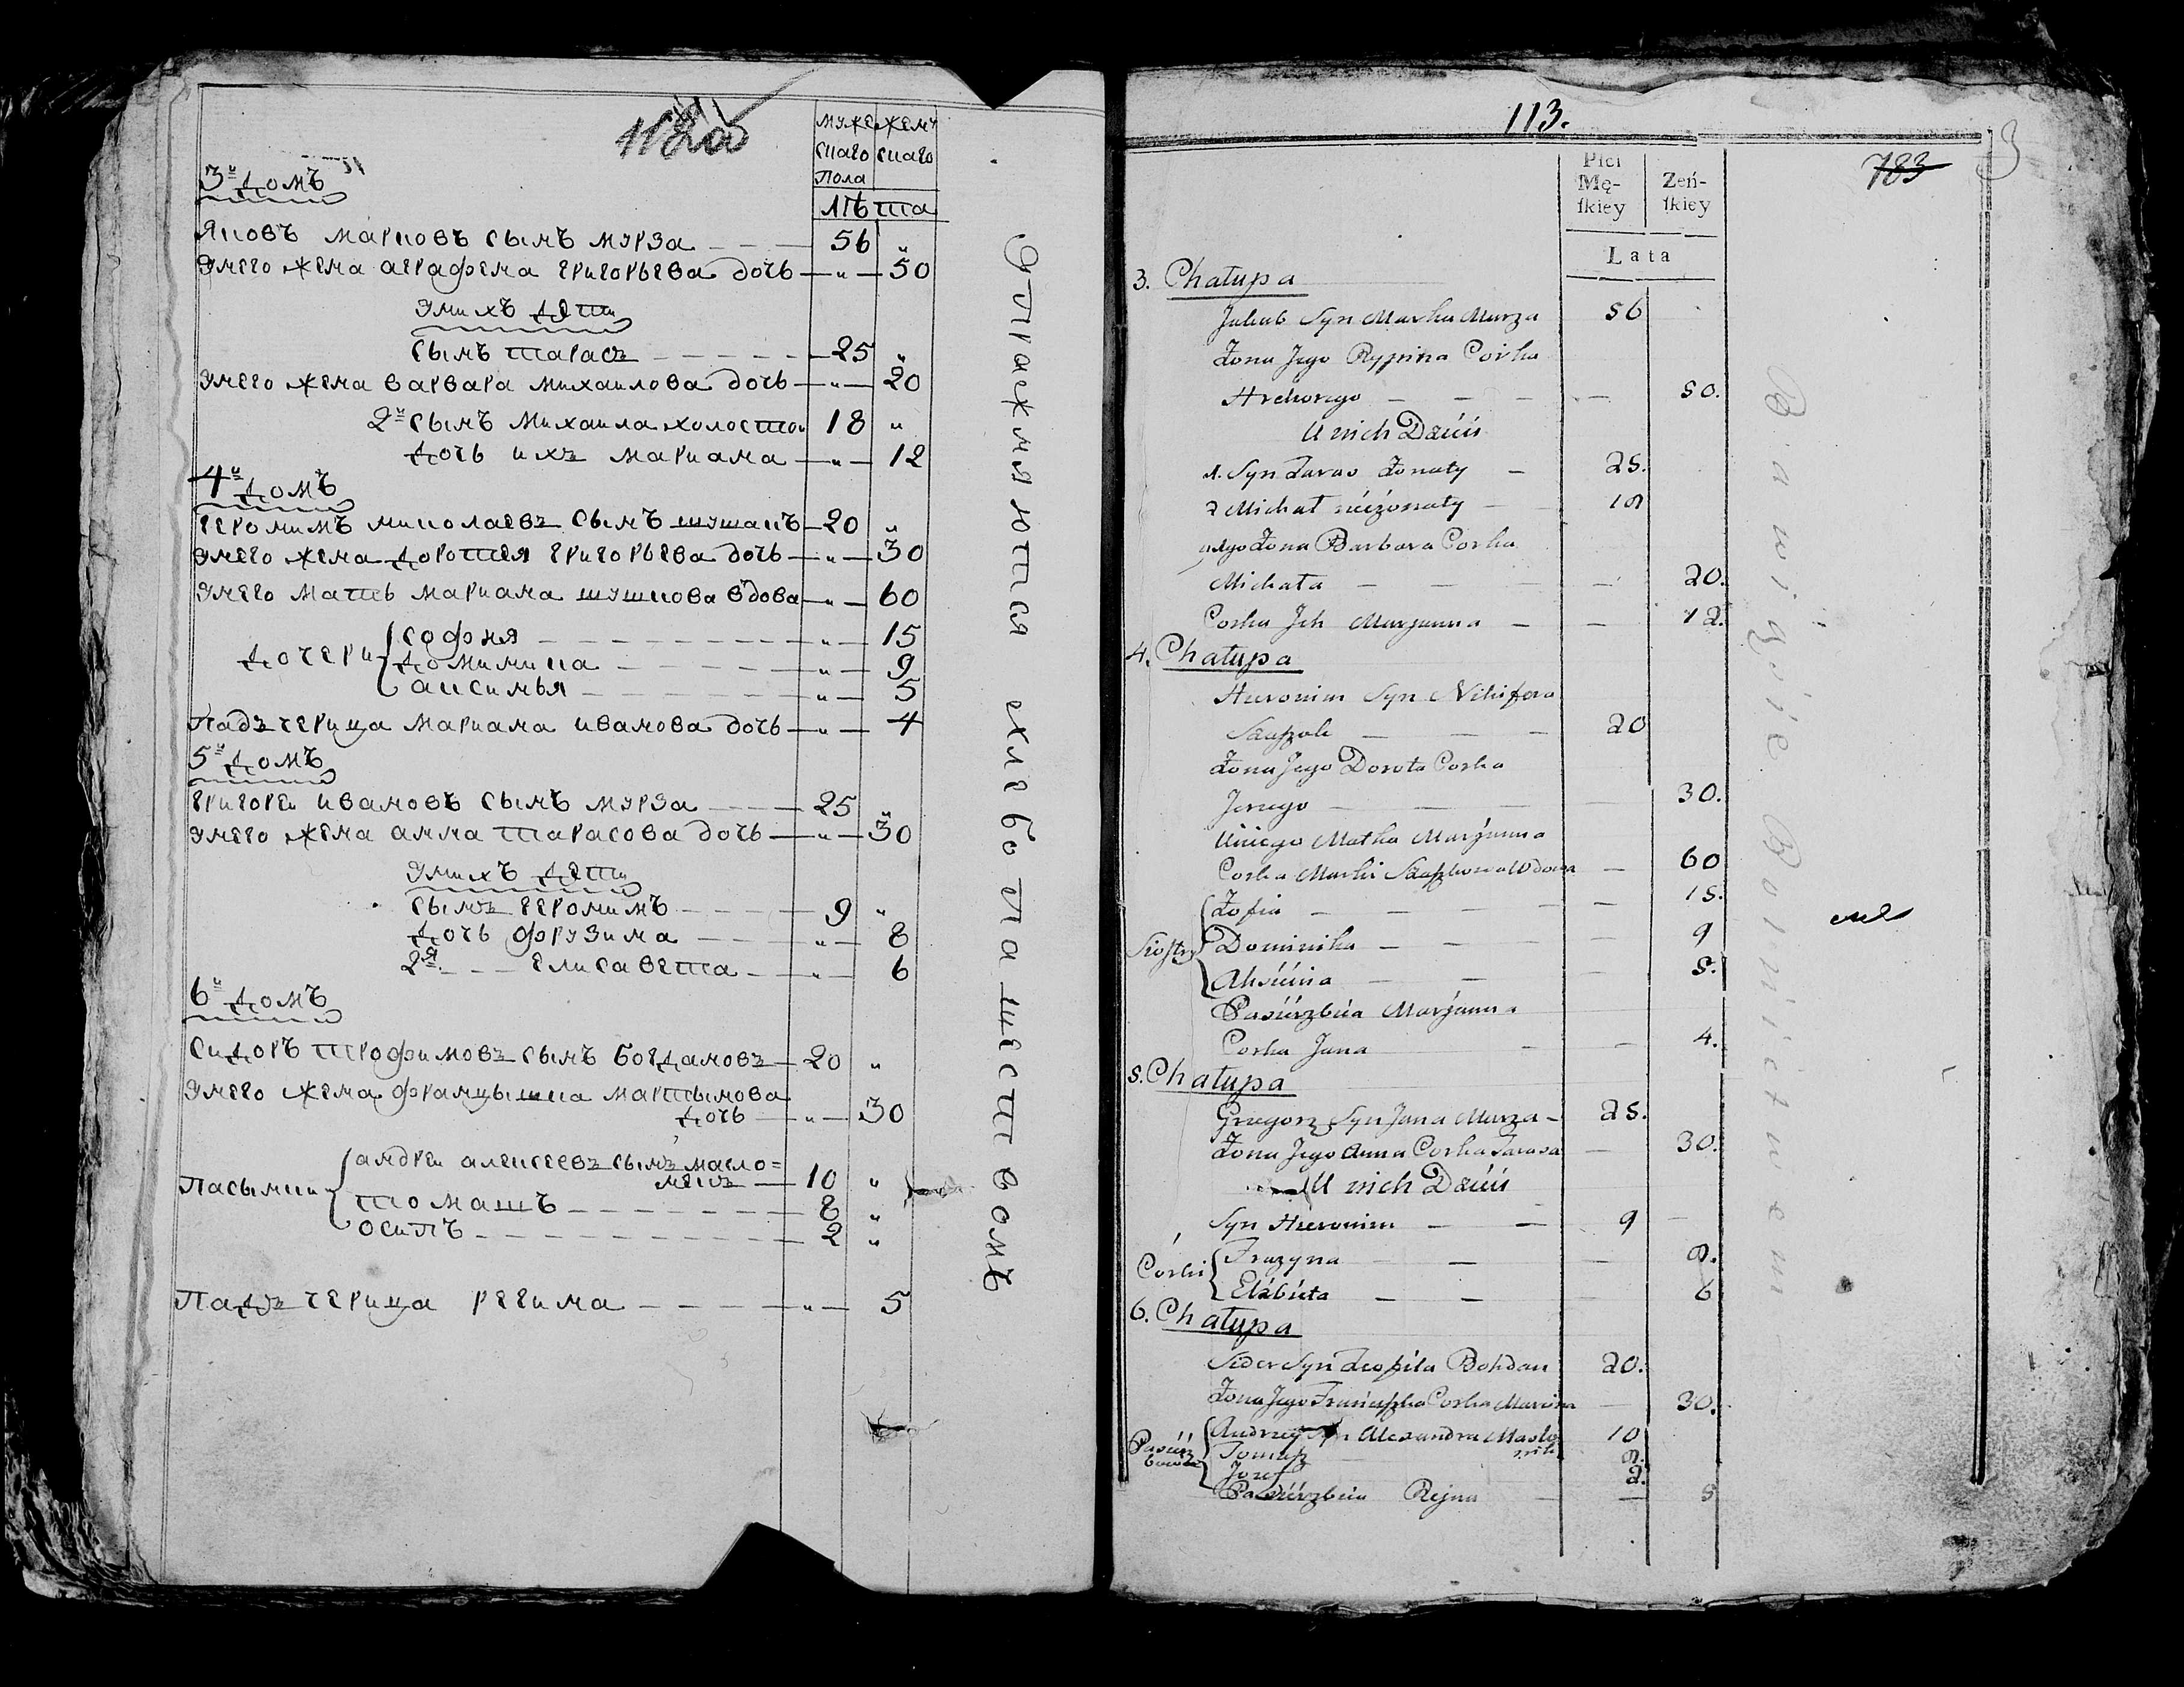 муже
скаго
Пола
женс
скаго
лѣта
3й домъ
Яковъ марковъ сынъ мурза — 56 „
Унего жена аграфена григорьева дочь — „ — 50
Унихъ дѣти
сынъ тарасъ — 25 „
Унего жена варвара михаилова дочь — „ — 20
2й сынъ михаила холостой 18 „
дочь ихъ мариана — „ — 12
4й домъ
геронимъ николаевъ сынъ шушакъ — 20 „
Унего жена доротея григорьева дочь — „ — 30
Унего мать мариана шушкова вдова — „ — 60
дочери
софия — „ — 15
доминика — „ — 9
аксинья — „ — 5
Падъчерица мариана иванова дочь — „ — 4
5й домъ
григорей ивановъ сынъ мурза — 25 „
Унего жена анна тарасова дочь — „ — 30
Унихъ дѣти
сынъ геронимъ — 9 „
дочь фрузина — „ — 8
2я — елисавета — „ — 6
6й домъ
сидоръ трофимовъ сынъ богдановъ — 20 „
Унего жена францышка мартынова
дочь — „ — 30
Пасынки
андрей алексеевъ сынъ масло=
некъ — 10 „
томашъ — 8 „
осипъ — 2 „
Падъчерица регина — „ — 5
Упражняются хлебопашествомъ
113.
783
Płci
Mę-
ſkiey
Zeń-
ſkiey
Lata
3. Chałupa
Jakub Syn Marka Murza 56
Żona Jego Rypina Corka
Hrehorego — — — — 50.
U nich Dzieci
1. Syn Taras Żonaty — 25.
2 Michał nieżonaty — 18
Żona Barbara Corka
Michała — — — — 20.
Corka Ich Maryanna — — 12.
4. Chałupa
Hieronim Syn Nikifora
Szuszak — — — 20
Żona Jego Dorota Corka
Jerzego — — — — 30.
U niego Matka Maryanna
Corka Marki Szuszkowa Wdowa — 60
Siostry
Zofia — — — — — 15.
Dominika — — — — 9
Aksinia — — — 5.
Pasierzbica Maryanna
Corka Jana — — 4.
5. Chałupa
Grzegorz Syn Jana Murza — 25.
Żona Jego Anna Corka Tarasa — 30.
U nich Dzieci
Syn Hieronim — — 9 —
Córki
Fruzyna — — — 8.
Elżbieta — — — 6
6. Chałupa
Sidor Syn Teofila Bohdan 20.
Żona Jego Franciszka Corka Marcina — 30.
Andrzey Syn Alexandra Masło
nik 10
Tomasz 8.
Jozef 2.
Pasierzbica Rejna — — 5
Bawią się Rolnictwem